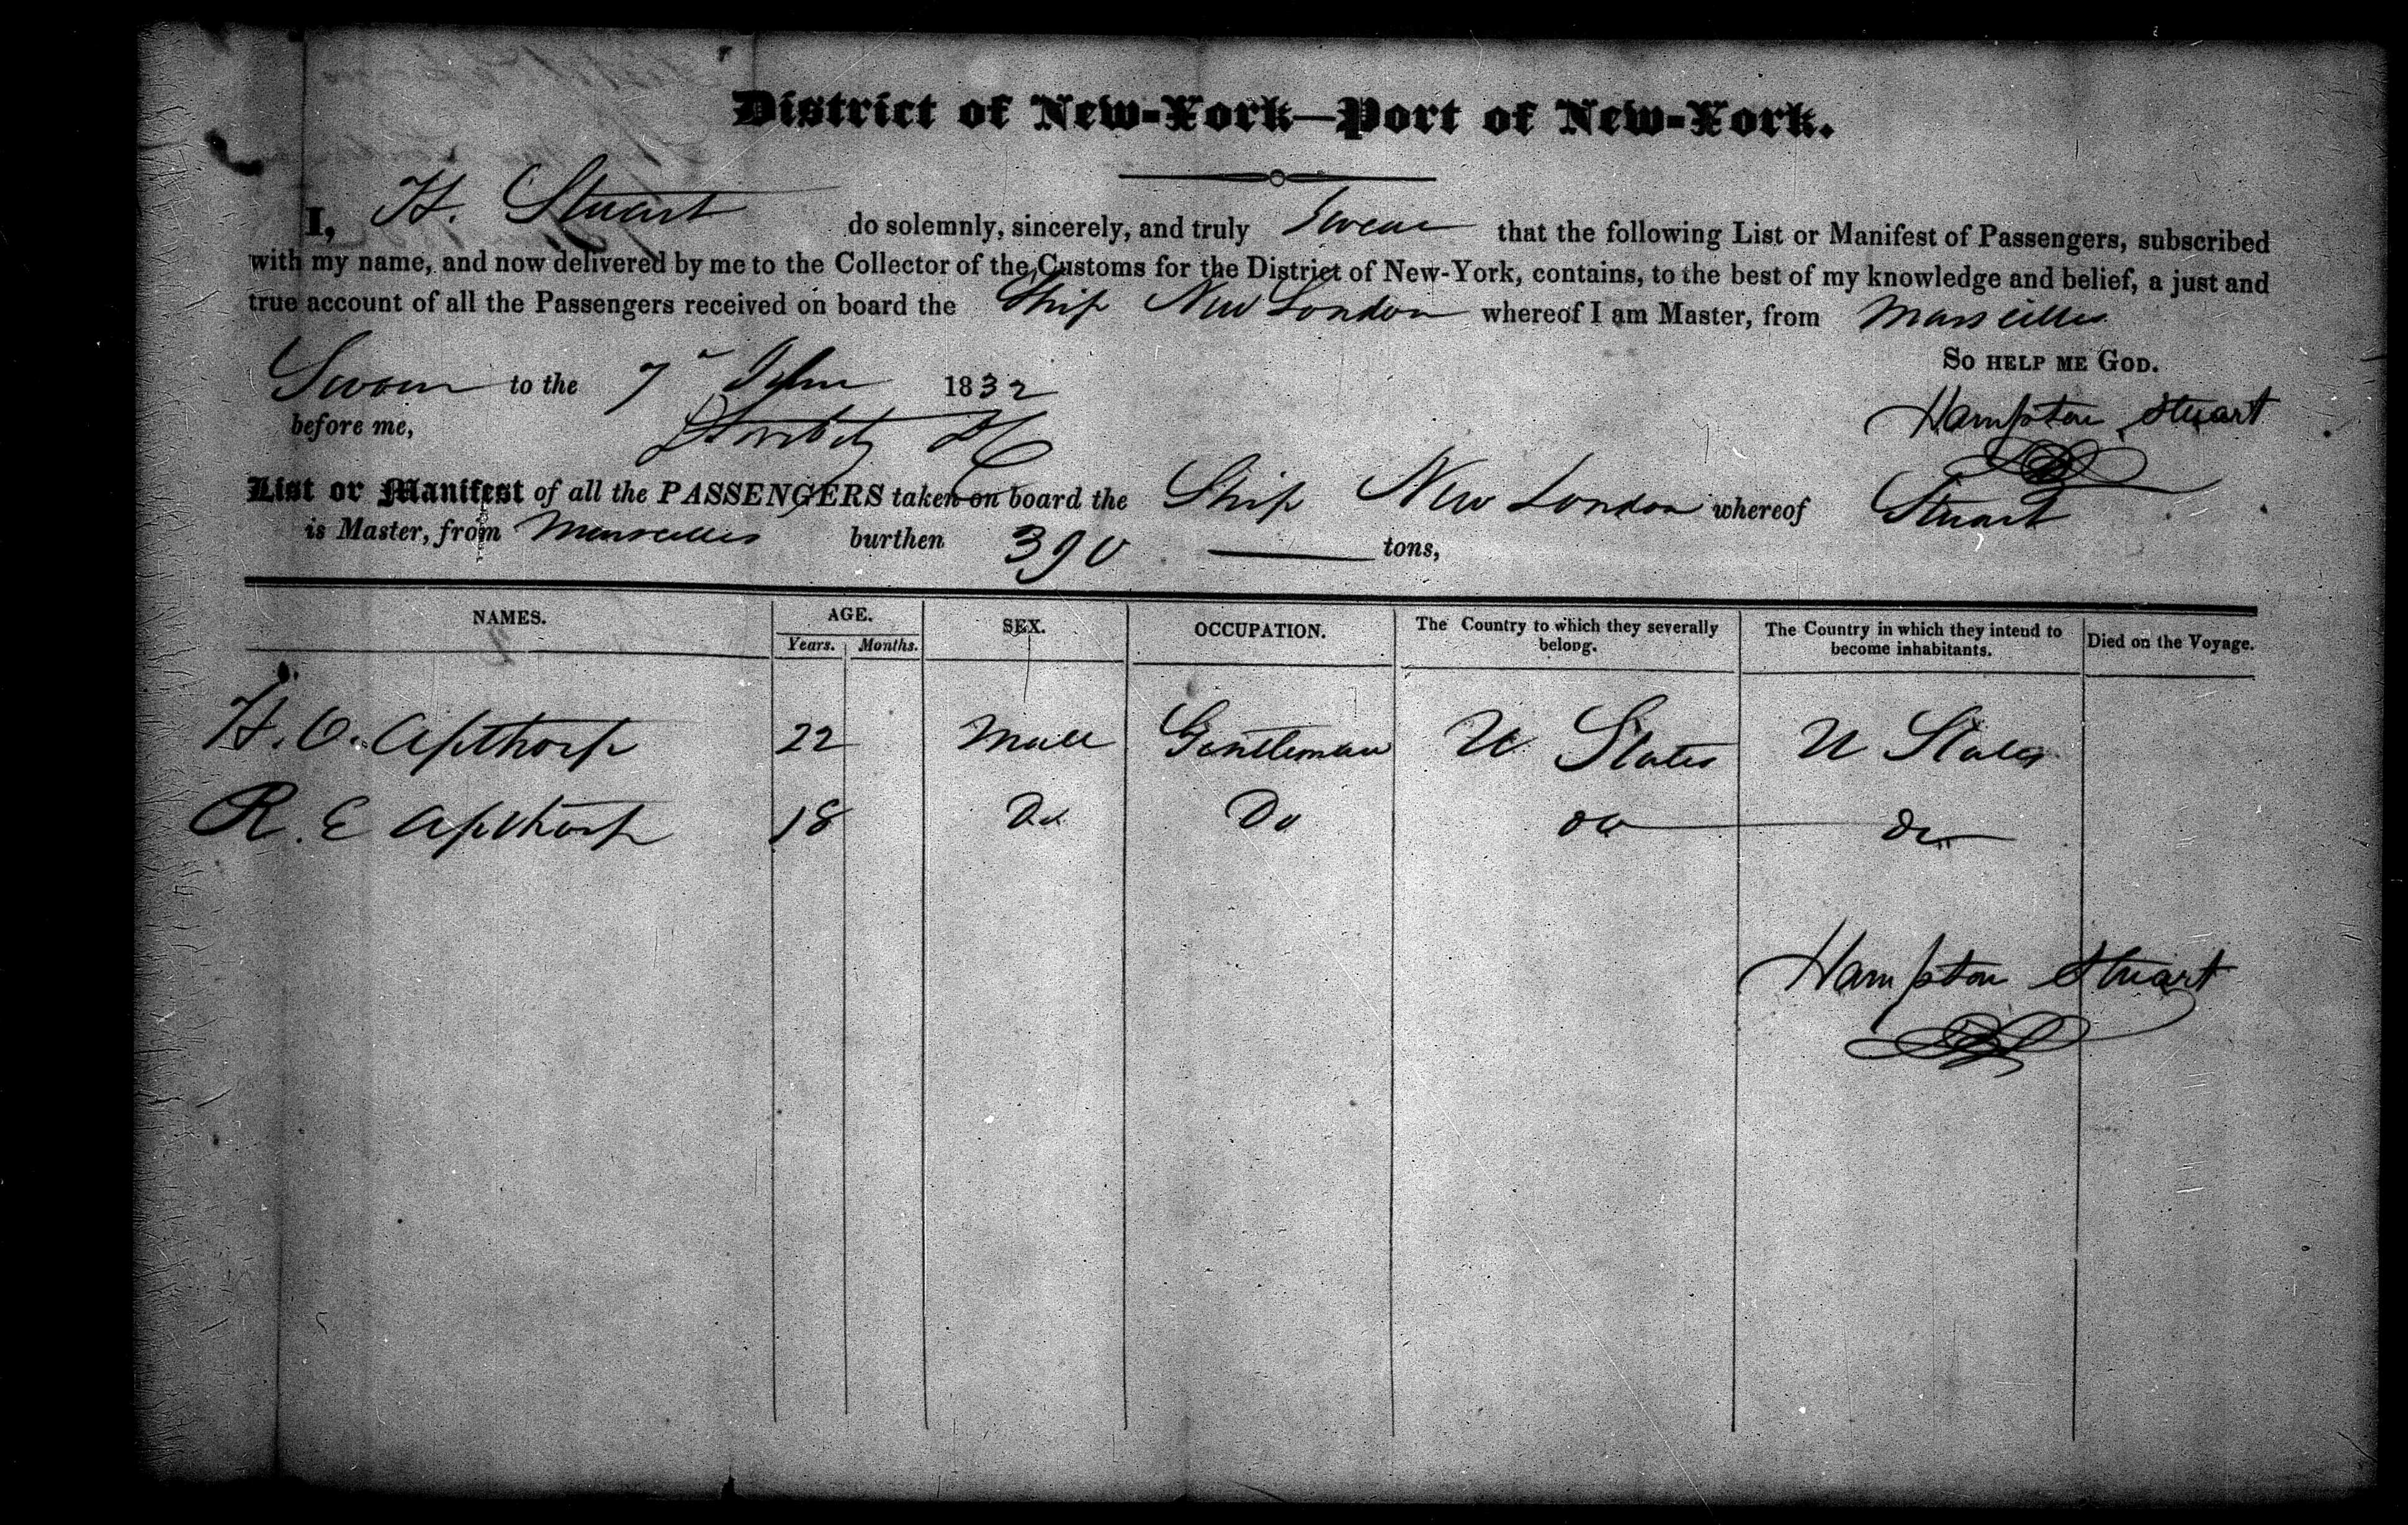 District of New-York—Port of New-York.
I, H. Stuart do solemnly, sincerely, and truly Swear that the following List or Manifest of Passengers, subscribed
with my name, and now delivered by me to the Collector of the Customs for the District of New-York, contains, to the best of my knowledge and belief, a just and
true account of all the Passengers received on board the Ship New London whereof I am Master, from Marseilles
So help me God.
Sworn to the 7 1832
before me,
Hampton Stuart
List or Manifest of all the PASSENGERS taken on board the Ship New London whereof Stuart
is Master, from Marseilles burthen 390 tons,
NAMES. AGE. Years. Months. SEX. OCCUPATION. The Country to which they severally belong. The Country in which they intend to become inhabitants. Died on the Voyage.
H. O. Apthorp 22 Male Gentleman U States U States
R. E Apthorp 18 Do Do do do
Hampton Stuart